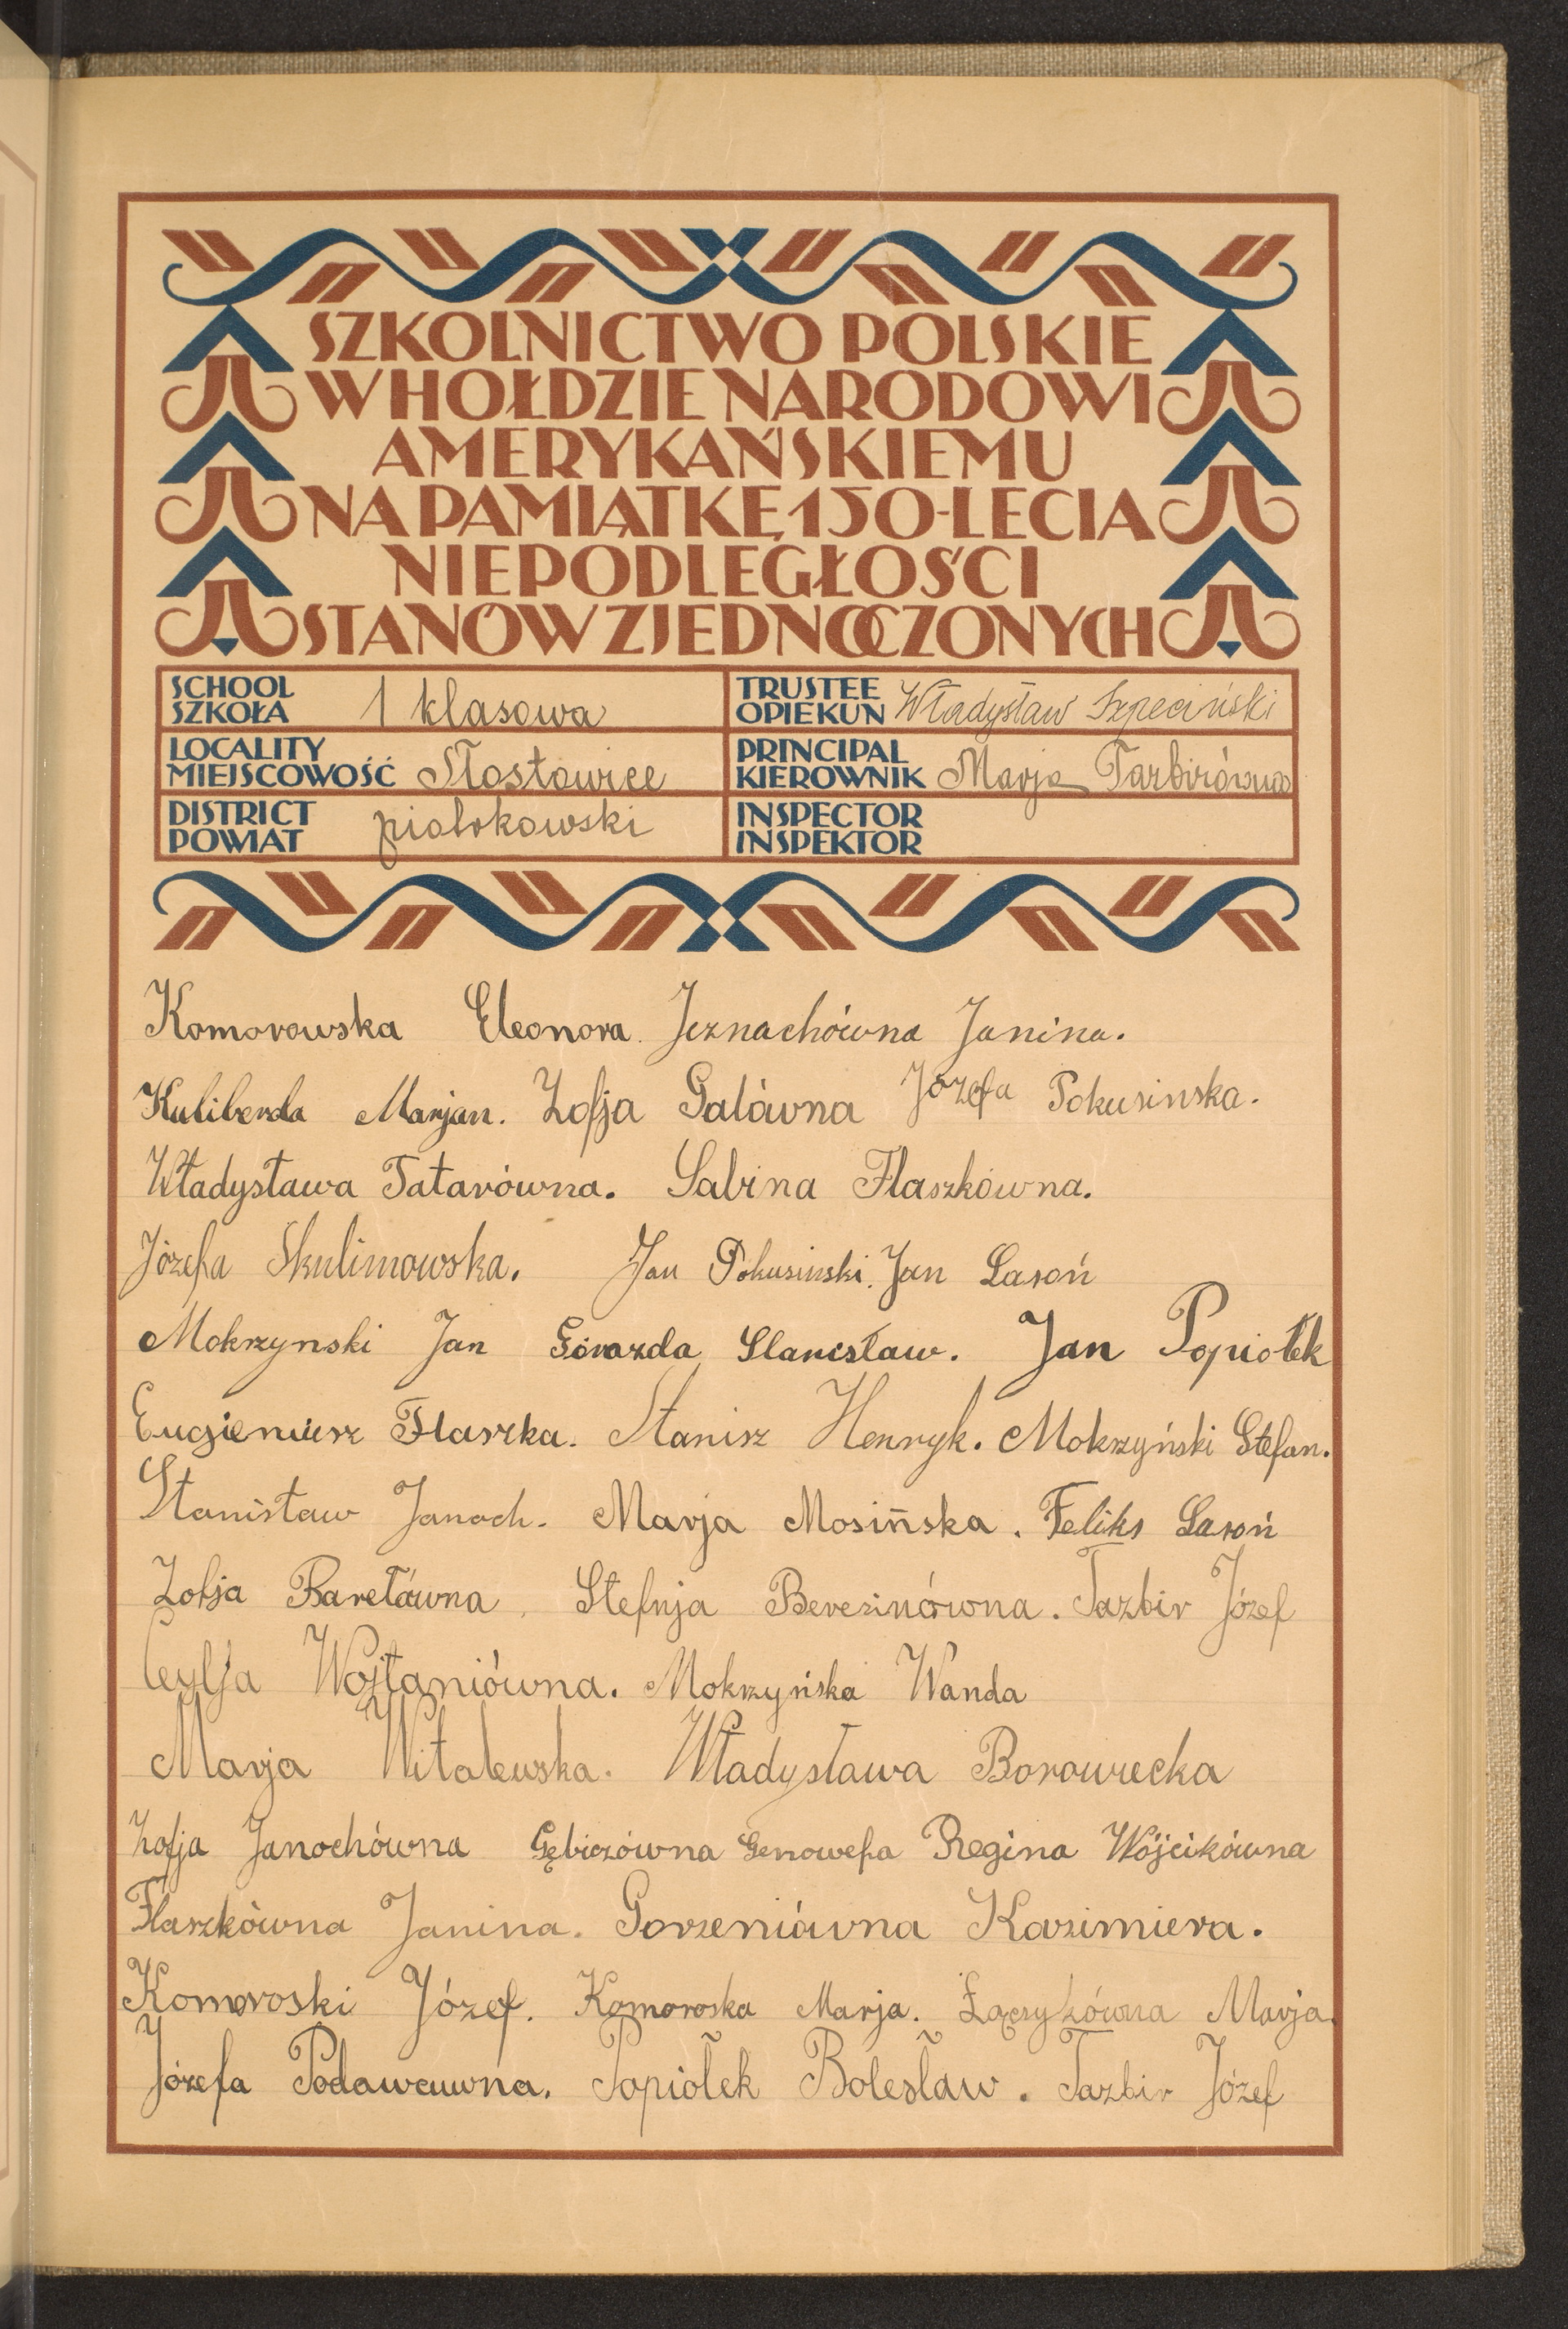 SZKOLNICTWO POLSKIE
W HOŁDZIE NARODOWI
AMERYKAŃSKIEMU
NA PAMIĄTKĘ 150-LECIA
NIEPODLEGŁOŚCI
STANÓW ZJEDNOCZONYCH
SCHOOL
SZKOŁA 1 klasowa
TRUSTEE
OPIEKUN Władysław Szpeciński
LOCALITY
MIEJSCOWOŚĆ Stostowice
PRINCIPAL
KIEROWNIK Marja Tarbirówna
DISTRICT
POWIAT piotrkowski
INSPECTOR
INSPEKTOR
Komorowska Eleonora. Jeznachówna Janina.
Kuliberda Marjan. Zofja Galówna Józefa Pokusinska.
Władysława Tatarówna. Sabina Flaszkówna.
Józefa Skulimowska. Jan Pokusinski. Jan Lasoń
Mokrzynski Jan Gówazda Stanisław. Jan Popiołek
Eugieniusz Flaszka. Stanisz Henryk. Mokrzyński Stefan.
Stanisław Janoch. Marja Mosińska. Feliks Lasoń
Zofja Barełówna. Stefnja Beresinówna. Tazbir Józef
Cylja Wojtaniówna. Mokrzyńska Wanda
Marja Witalewska. Władysława Borowiecka
Zofja Janochówna Gębiczówna Genowefa Regina Wójcikówna
Flaszkówna Janina. Gorzeniówna Kazimiera.
Komoroski Józef. Komoroska Marja. Marja.
Józefa Popiołek Bolesław. Tazbir Józef